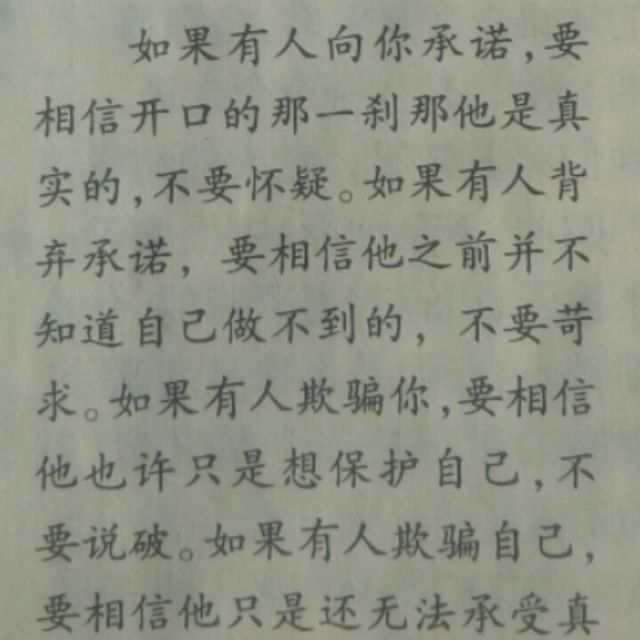 如果有人向你承诺,要
相信开口的那一刹那他是真
实的,不要怀疑。如果有人背
弃承诺，要相信他之前并不
知道自己做不到的，不要苛
求。如果有人欺骗你,要相信
他也许只是想保护自己,不
要说破。如果有人欺骗自己,
要相信他只是还无法承受真